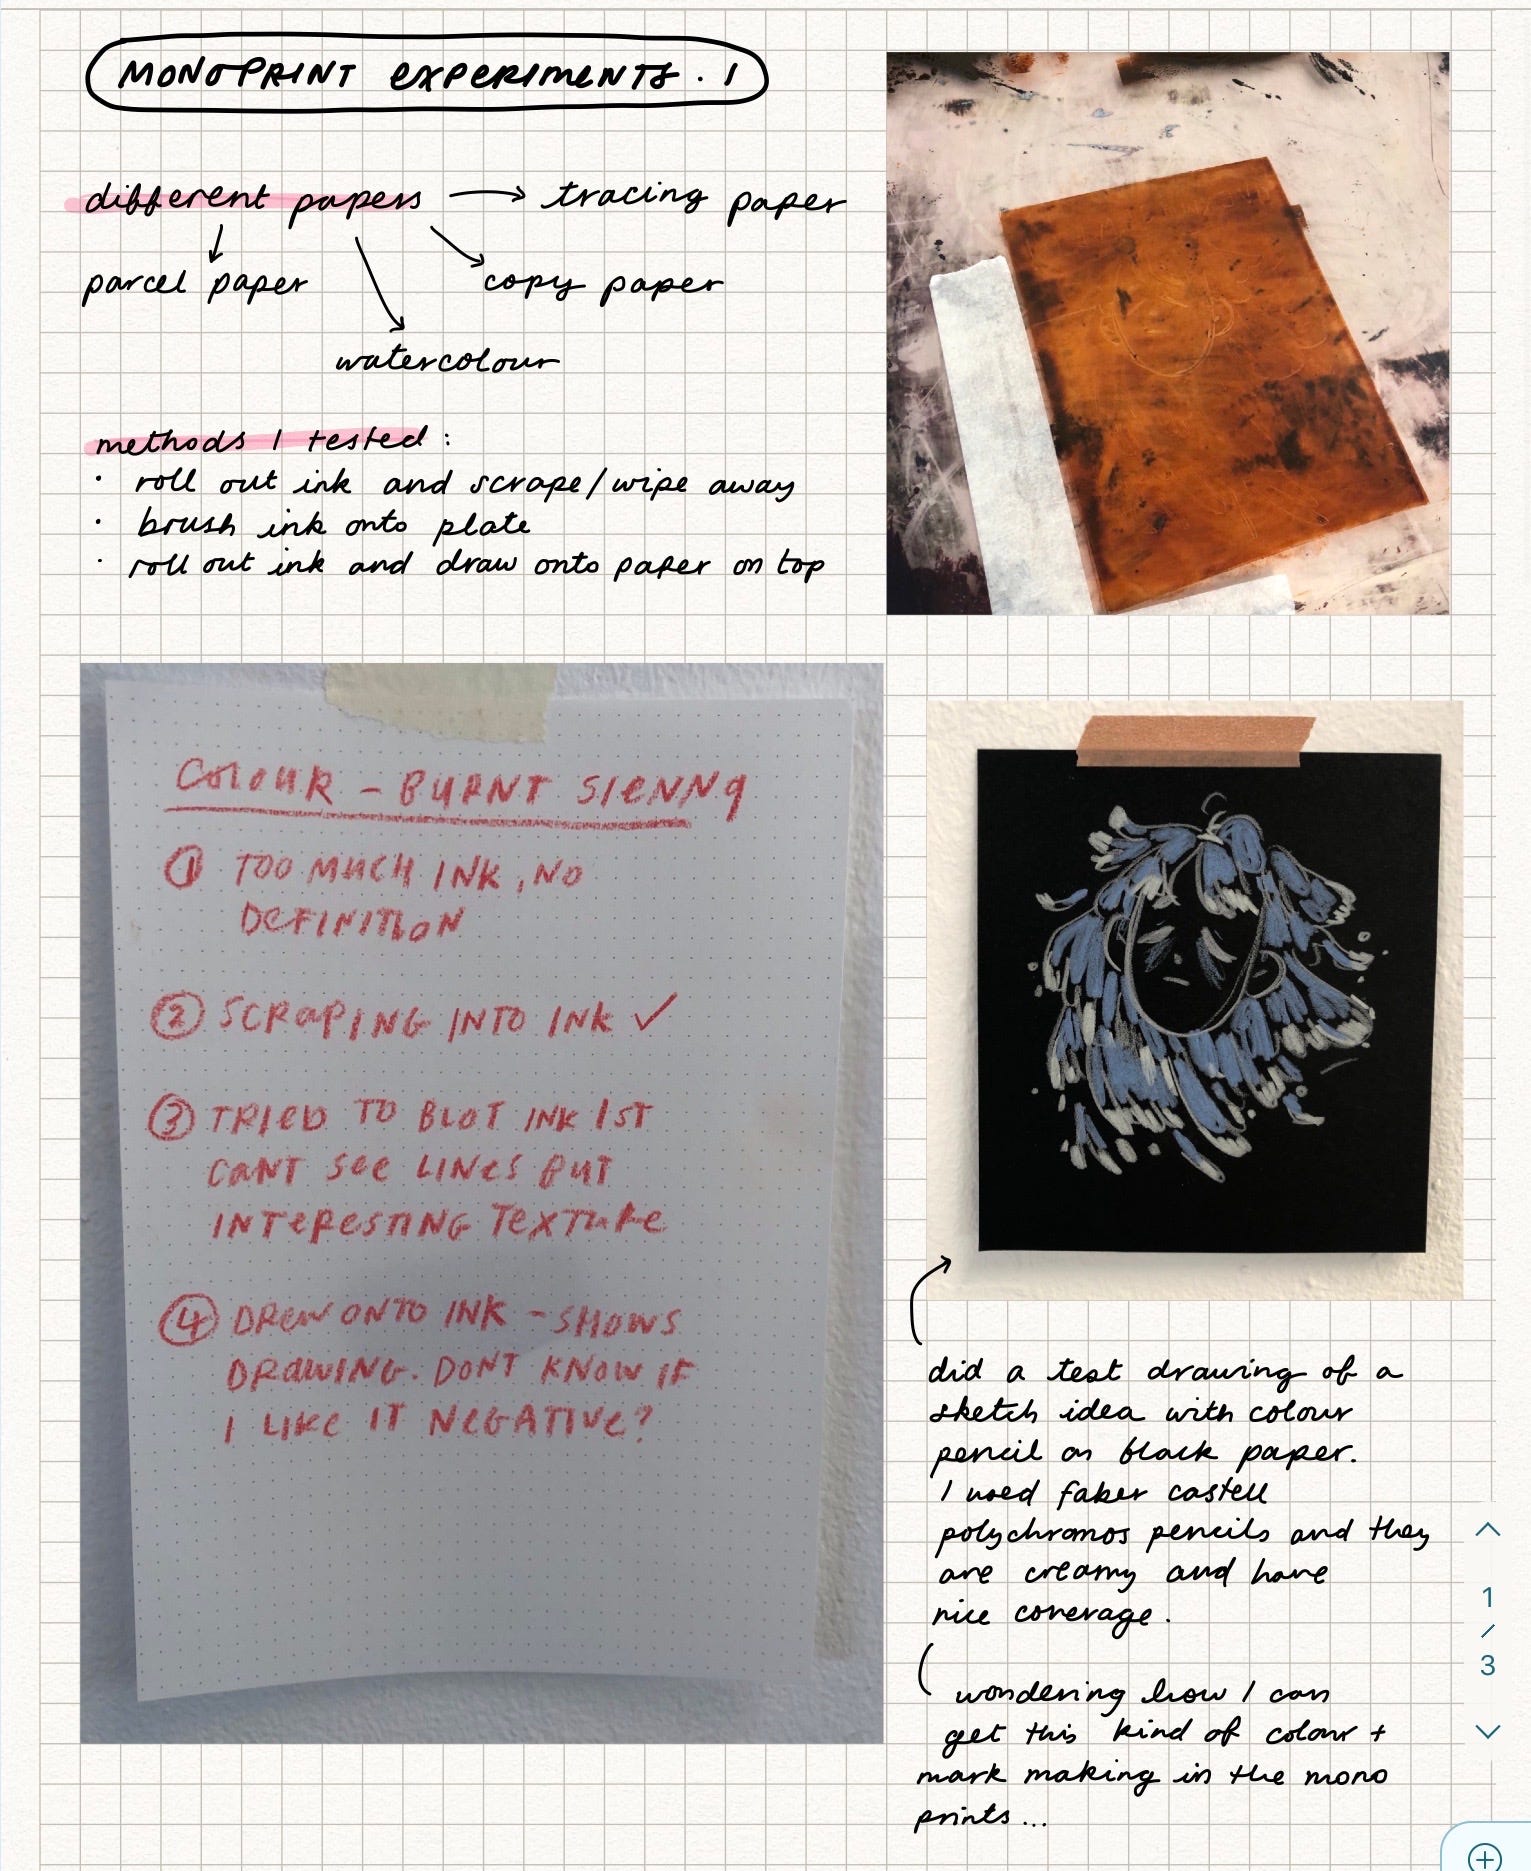 MONOPRINT EXPERIMENTS. 1
different papers → tracing paper
parcel paper
copy paper
watercolour
methods I tested:
· roll out ink and scrape/wipe away
· brush ink onto plate
· roll out ink and draw onto paper on top
COLOUR - BURNT SIENNA
① TOO MUCH INK, NO
DEFINITION
② SCRAPING INTO INK ✓
③ TRIED TO BLOT INK 1ST
CANT SEE LINES BUT
INTERESTING TEXTURE
④ DREW ONTO INK - SHOWS
DRAWING. DONT KNOW IF
I LIKE IT NEGATIVE?
did a test drawing of a
sketch idea with colour
pencil on black paper.
I used faber castell
polychromos pencils and they
are creamy and have
nice coverage.
wondering how I can
get this kind of colour +
mark making in the mono
prints...
1
/
3